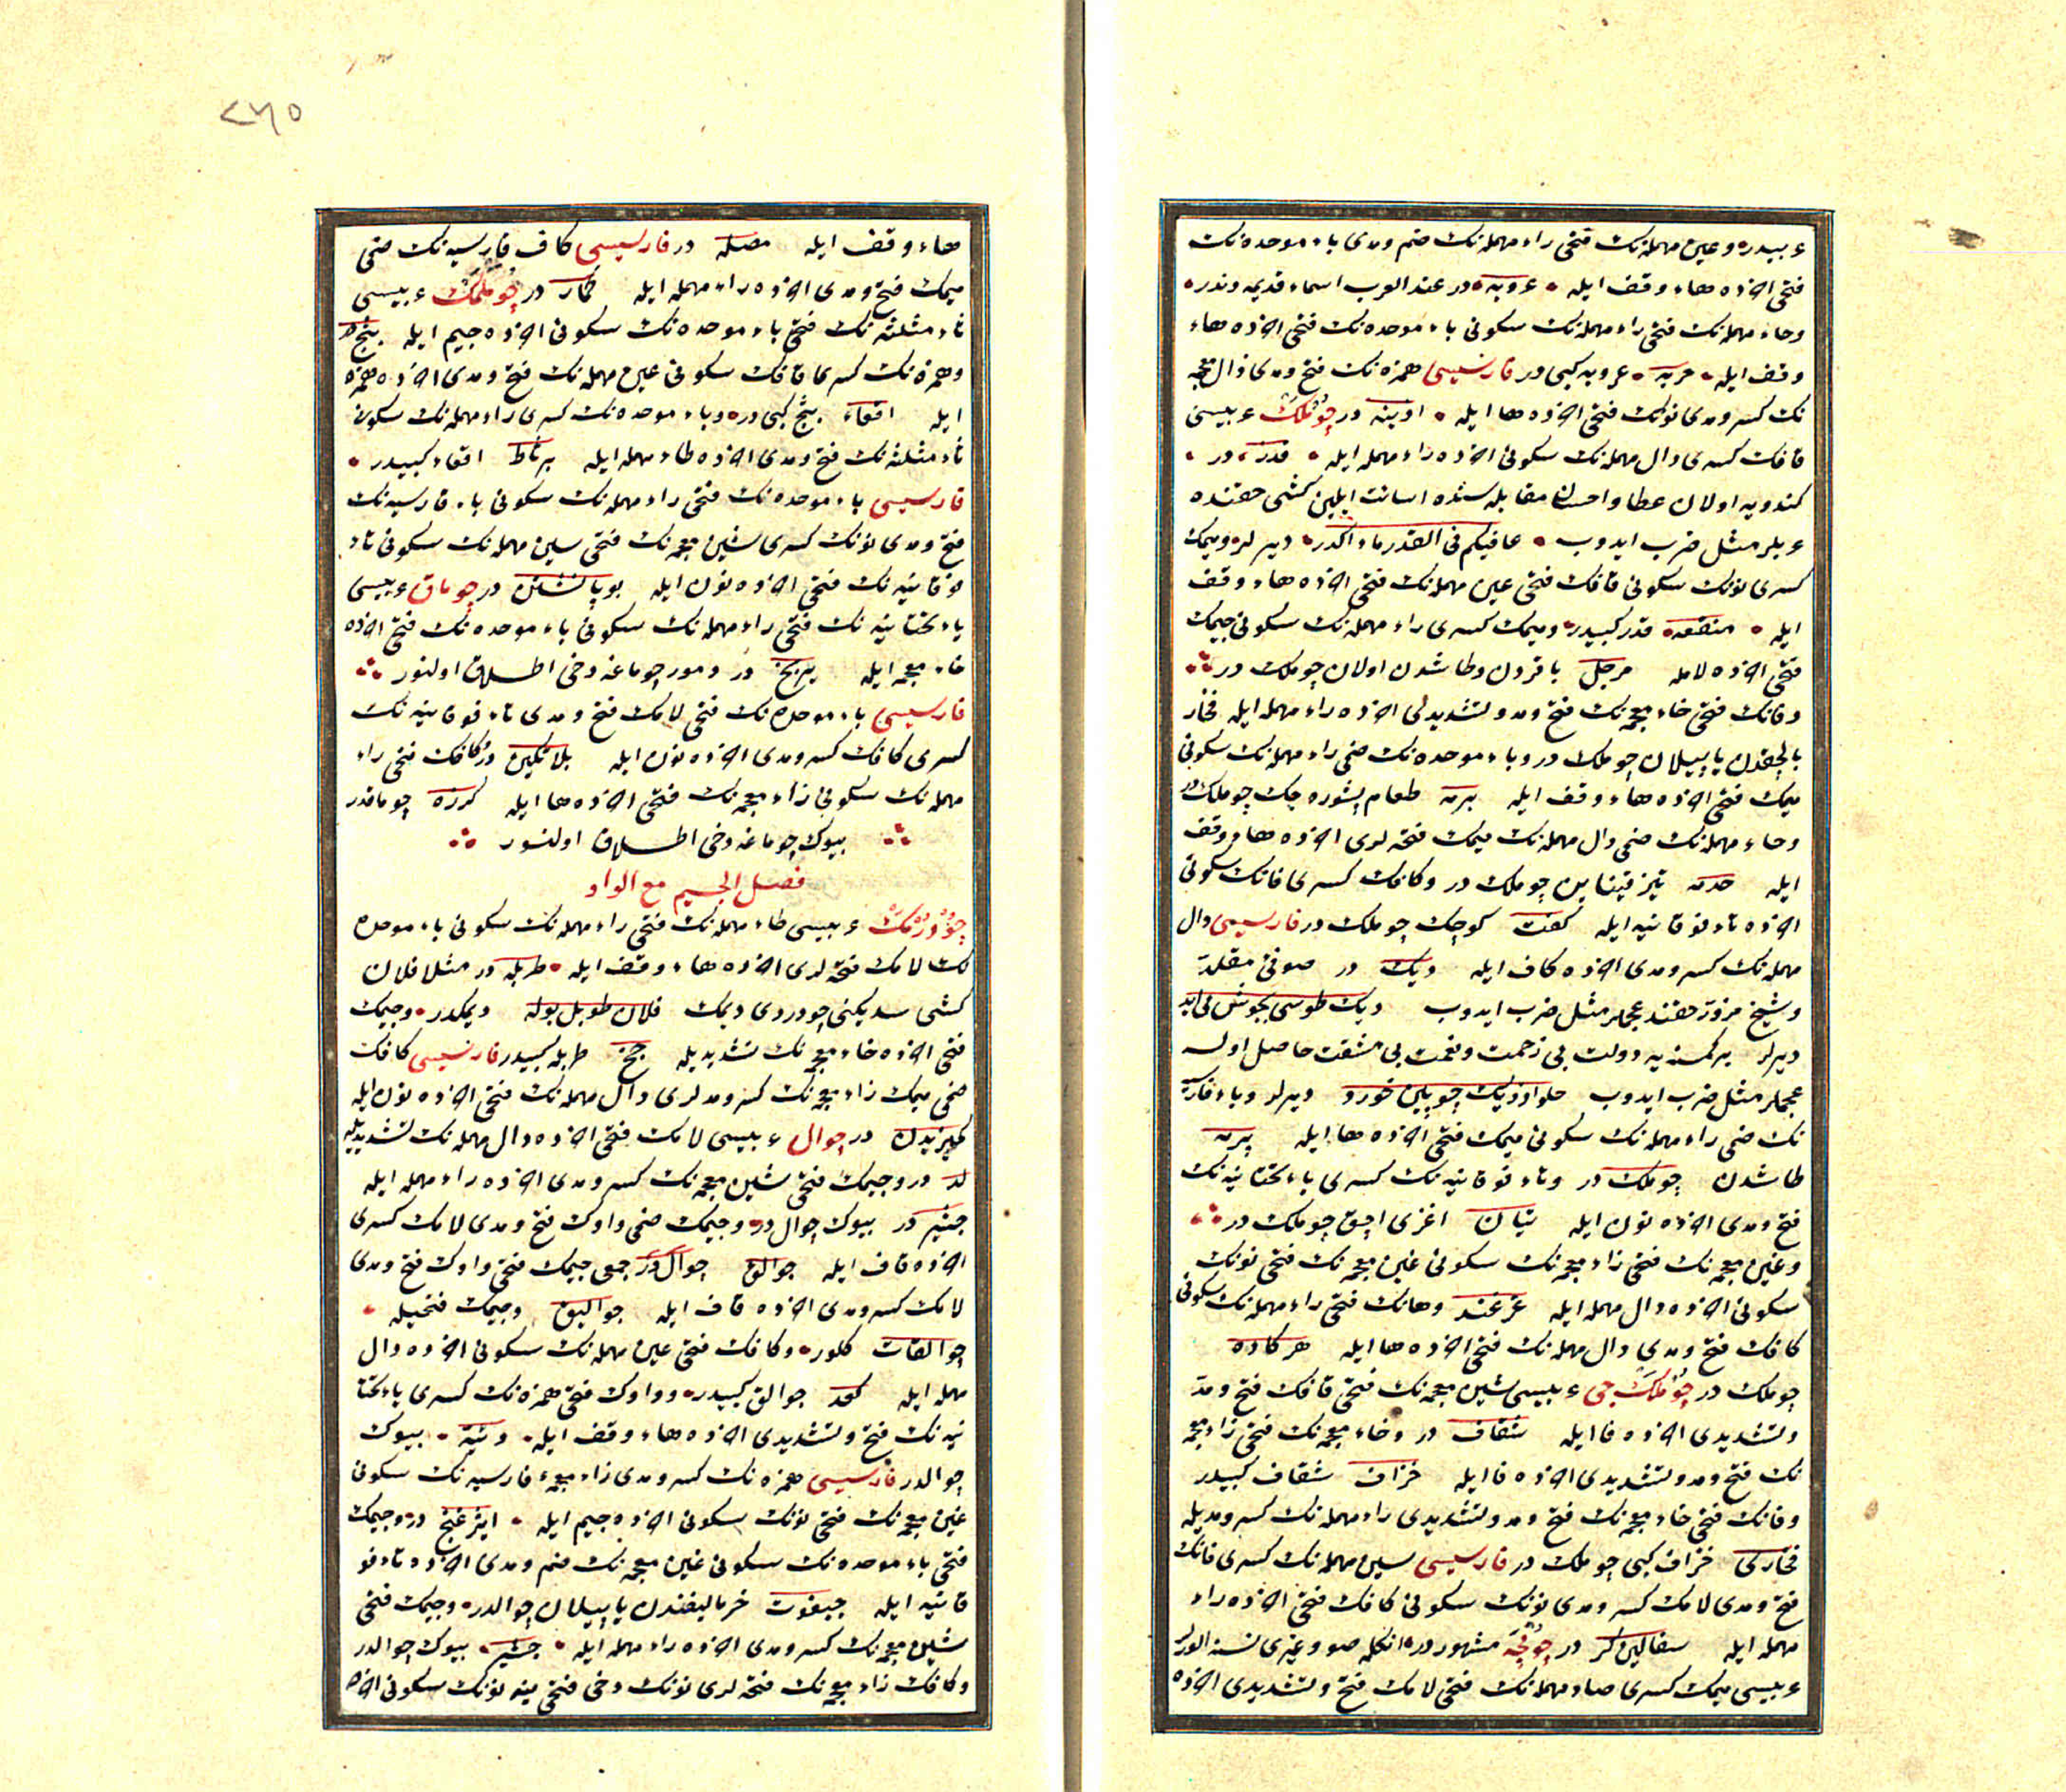 عربیدر وعین مهمله‌نک فتحی راء مهمله‌نک ضم ومدی باء موحده‌نک
فتحی اخرده هاء وقف ایله عروبه در عند العرب اسماء قدیمه‌دندر
وحاء مهمله‌نک فتحی راء مهمله‌نک سکونی باء موحده‌نک فتحی اخرده هاء
وقف ایله حربه عروبه کبی در فارسیسی همزه‌نک فتح ومدی ذال معجمه
نک کسر ومدی نونک فتحی اخرده ها ایله اذینه در چوملک عربیسی
قافک کسری دال مهمله‌نک سکونی اخرده راء مهمله ایله قدر در
کندویه اولان عطا واحسان مقابله‌سنده اسائت ایلین کشی حقنده
عربلر مثل ضرب ایدوب عافیکم فی القدر ماء اکدر دیرلر ومیمک
کسری نونک سکونی قافک فتحی عین مهمله‌نک فتحی اخرده هاء وقف
ایله منقعه قدر کبیدر ومیمک کسری راء مهمله‌نک سکونی جیمک
فتحی اخرده لامله مرجل باقردن وطاشدن اولان چوملک در
وفانک فتحی خاء معجمه‌نک فتح ومد وتشدیدی اخرده راء مهمله ایله فخار
بالچقدن یاپیلان چوملک در وباء موحده‌نک ضمی راء مهمله‌نک سکونی
میمک فتحی اخرده هاء وقف ایله برمه طعام پشوره‌جک چوملک در
وحاء مهمله‌نک ضمی دال مهمله‌نک میمک فتحه‌لری اخرده هاء وقف
ایله حدمه تیز قیناین چوملک در وکافک کسری فانک سکونی
اخرده تاء فوقانیه ایله کفت کوچک چوملک در فارسیسی دال
مهمله‌نک کسر ومدی اخرده کاف ایله دیک در صوفی مقلد
وشیخ مزور حقنده عجملر مثل ضرب ایدوب دیک طوسی بجوش می‌اید
دیرلر بر کمسه‌یه دولت بی زحمت ونعمت بی مشقت حاصل اولسه
عجملر مثل ضرب ایدوب حلوا از دیک چوبین خورد دیرلر وباء فارسیه
نک ضمی راء مهمله‌نک سکونی میمک فتحی اخرده ها ایله پرمه
طاشدن چوملک در وتاء فوقانیه‌نک کسری یاء تحتانیه‌نک
فتح ومدی اخرده نون ایله تیان اغزی اچق چوملک در
وغین معجمه‌نک فتحی زاء معجمه‌نک سکونی غین معجمه‌نک فتحی نونک
سکونی اخرده دال مهمله ایله غزغند وهانک فتحی راء مهمله‌نک سکونی
کافک فتح ومدی دال مهمله‌نک فتحی اخرده ها ایله هرکاده
چوملک در چوملک جی عربیسی شین معجمه‌نک فتحی قافک فتح ومد
وتشدیدی اخرده فا ایله شقاف در وخاء معجمه‌نک فتحی زاء معجمه
نک فتح ومد وتشدیدی اخرده فا ایله خزاف شقاف کبیدر
وفانک فتحی خاء معجمه‌نک فتح ومد وتشدیدی راء مهمله‌نک کسر ومدیله
فخاری خزاف کبی چوملک در فارسیسی سین مهمله‌نک کسری فانک
فتح ومدی لامک کسر ومدی نونک سکونی کافک فتحی اخرده راء
مهمله ایله سفالین کر در مشهور در انکله صو وغیری نسنه
عربیسی میمک کسری صاد مهمله‌نک فتحی لامک فتح وتشدیدی اخرده
٢٦٥
هاء وقف ایله مصله در فارسیسی کاف فارسیه‌نک ضمی
میمک فتح ومدی اخرده راء مهمله ایله کمار در چوملمک عربیسی
ثاء مثلثه‌نک فتحی باء موحده‌نک سکونی اخرده جیم ایله ثبج در
وهمزه‌نک کسری قافک سکونی عین مهمله‌نک فتح ومدی اخرده همزه
ایله اقعاء ثبج کبی در وباء موحده‌نک کسری راء مهمله‌نک سکونی
ثاء مثلثه‌نک فتح ومدی اخرده طاء مهمله ایله برثاط اقعاء کبیدر
فارسیسی باء موحده‌نک فتحی راء مهمله‌نک سکونی باء فارسیه‌نک
فتح ومدی نونک کسری شین معجمه‌نک فتحی سین مهمله‌نک سکونی تاء
فوقانیه‌نک فتحی اخرده نون ایله در چوماق عربیسی
یاء تحتانیه‌نک فتحی راء مهمله‌نک سکونی باء موحده‌نک فتحی اخرده
خاء معجمه ایله یربخ در ودمور چوماغه دخی اطلاق اولنور
فارسیسی باء موحده‌نک فتحی لامک فتح ومدی تاء فوقانیه‌نک
کسری کافک کسر ومدی اخرده نون ایله بلاتکین در وکافک فتحی راء
مهمله‌نک سکونی زاء معجمه‌نک فتحی اخرده ها ایله کرزه چوماقدر
بیوک چوماغه دخی اطلاق اولنور
فصل الجیم مع الواو
چودرمک عربیسی طاء مهمله‌نک فتحی راء مهمله‌نک سکونی باء موحده
نک لامک فتحه‌لری اخرده هاء وقف ایله طربله در مثلا فلان
کشی سدیکنی چودردی دیمک فلان طربل بوله دیمکدر وجیمک
فتحی اخرده خاء معجمه‌نک تشدیدیله جخ طربله کبیدر فارسیسی کافک
ضمی میمک زاء معجمه‌نک کسر ومدلری دال مهمله‌نک فتحی اخرده نون ایله
کمیزیدن در چوال عربیسی لامک فتحی اخرده دال مهمله‌نک تشدیدیله
لد در وجیمک فتحی شین معجمه‌نک کسر ومدی اخرده راء مهمله ایله
جشیر در بیوک چوال در وجیمک ضمی واوک فتح ومدی لامک کسری
اخرده قاف ایله جوالق چوال در جمعی جیمک فتحی واوک فتح ومدی
لامک کسر ومدی اخرده قاف ایله جوالیق وجیمک فتحیله
جوالقات کلور وکافک فتحی عین مهمله‌نک سکونی اخرده دال
مهمله ایله کعد جوالق کبیدر وواوک فتحی همزه‌نک کسری یاء تحتا
نیه‌نک فتح وتشدیدی اخرده هاء وقف ایله وئیه بیوک
چوالدر فارسیسی همزه‌نک کسر ومدی زاء معجمهء فارسیه‌نک سکونی
غین معجمه‌نک فتحی نونک سکونی اخرده جیم ایله ایژغنج در وجیمک
فتحی باء موحده‌نک سکونی غین معجمه‌نک ضم ومدی اخرده تاء فو
قانیه ایله جبغوت خرما لیفندن یاپیلان چوالدر وجیمک فتحی
شین معجمه‌نک کسر ومدی اخرده راء مهمله ایله جشیر بیوک چوالدر
وکافک زاء معجمه‌نک فتحه‌لری نونک دخی فتحی ینه نونک سکونی اخرده